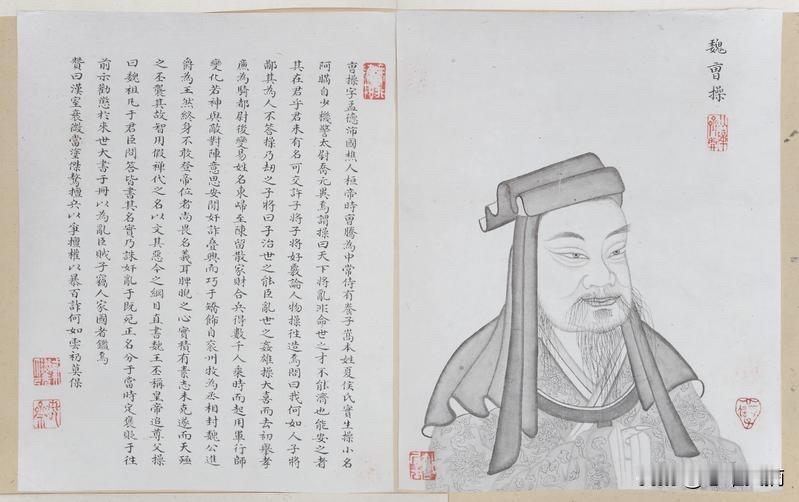 魏曹操
曹操字孟德沛國樵人桓帝時曹騰為中常侍有養子嵩本姓夏侯氏實生操小名
阿瞞自少機警太尉喬元異焉謂操曰天下將亂非命世之才不能濟也能安之者
其在君乎君未有名可交許子將子將好覈論人物操往造焉問曰我何如人子將
鄙其為人不答操乃劫之子將曰子治世之能臣亂世之姦雄操大喜而去初舉孝
廉為騎都尉後變易姓名東歸至陳留散家財合兵得數千人乘時而起用軍行師
變化若神與敵對陣意思安閒奸詐疊興而巧于矯飾自兗州牧為丞相封魏公進
爵為王然終身不敢登帝位者尚畏名義耳睥睨之心實積有素志未克遂而天殛
之丕襲其故智用假禪代之名以文其惡今之綱目直書魏王丕稱皇帝追尊父操
曰魏祖凡于君臣問答皆書其名實乃誅奸亂于既死正名分于當時定褒貶于往
前示勸懲於來世大書于冊以為亂臣賊子竊人家國者鑑焉
贊曰漢室衰微當塗傑驁擅兵以宰擅權以暴百詐何如雲礽莫保